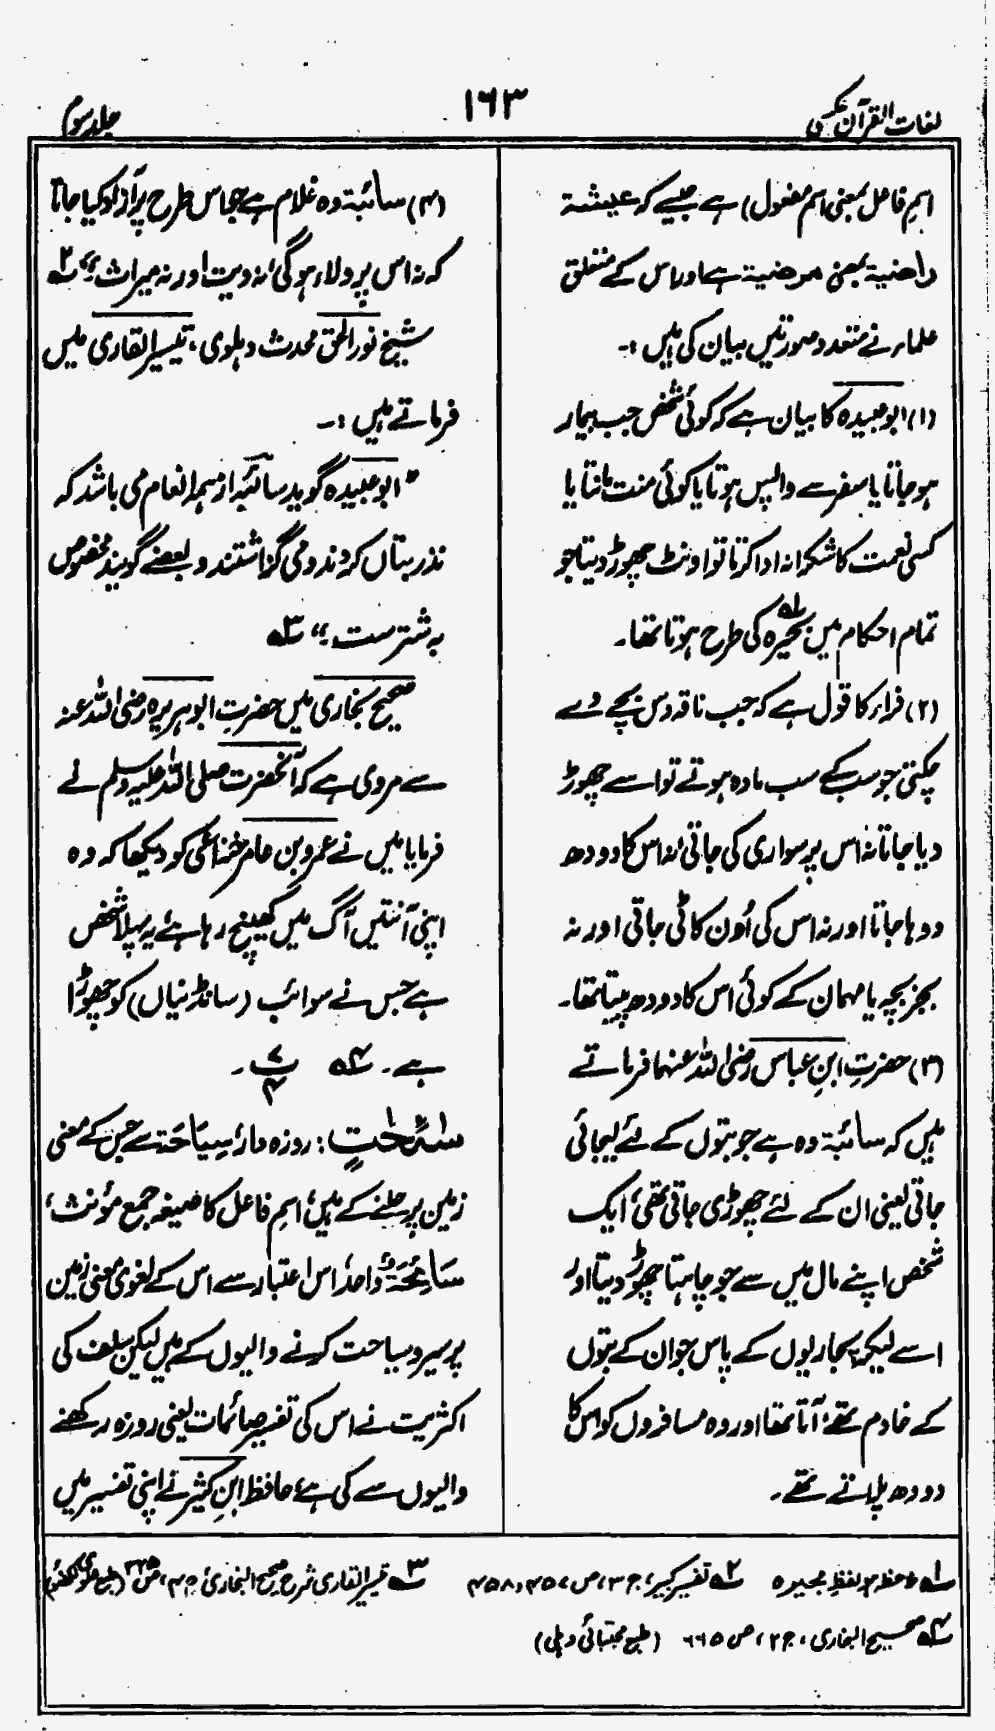 لغات القرآن عکسی
۱۶۳
جلد سوم
اسمِ فاعل بمعنی اسم مفعول) ہے جیسے کہ عیشۃ
راضیۃ بمعنی مرضیۃ ہے اور اس کے متعلق
علماء نے متعدد صورتیں بیان کی ہیں :-
(۱) ابو عبیدہ کا بیان ہے کہ کوئی شخص جب بیمار
ہو جاتا یا سفر سے واپس ہوتا یا کوئی منت مانتا یا
کسی نعمت کا شکرانہ ادا کرتا تو اونٹ چھوڑ دیتا جو
تمام احکام میں بحیرہ ۱؎ کی طرح ہوتا تھا۔
(۲) فراء کا قول ہے کہ جب ناقہ دس بچے دے
چکتی جو سب کے سب مادہ ہوتے تو اسے چھوڑ
دیا جاتا نہ اس پر سواری کی جاتی، نہ اس کا دودھ
دوہا جاتا اور نہ اس کی اُون کاٹی جاتی اور نہ
بجز بچہ یا مہمان کے کوئی اس کا دودھ پیتا تھا۔
(۳) حضرتِ ابنِ عباس رضی اللہ عنہما فرماتے
ہیں کہ سائبۃ وہ ہے جو بتوں کے لئے لیجائی
جاتی یعنی ان کے لئے چھوڑی جاتی تھی، ایک
شخص اپنے مال میں سے جو چاہتا چھوڑ دیتا اور
اسے لیکر پجاریوں کے پاس جو ان کے بتوں
کے خادم تھے آتا تھا اور وہ مسافروں کو اس کا
دودھ پلاتے تھے۔
(۴) سائبۃ وہ غلام ہے جو اس طرح پر آزاد کیا جاتا
کہ نہ اس پر ولاء ہوگی، نہ دیت اور نہ میراث ۲؎
شیخ نور الحق محدث دہلوی، تیسیر القاری میں
فرماتے ہیں :-
"ابو عبیدہ گوید سائبہ از ہمہ انعام می باشد کہ
نذر بتاں کردند و می گزاشتند و بعضے گویند مخصوص
بہ شتر ست" ۳؎
صحیح بخاری میں حضرتِ ابوہریرہ رضی اللہ عنہ
سے مروی ہے کہ آنحضرت صلی اللہ علیہ وسلم نے
فرمایا میں نے عمرو بن عامر خزاعی کو دیکھا کہ وہ
اپنی آنتیں آگ میں کھینچ رہا ہے یہ پہلا شخص
ہے جس نے سوائب (سانڈنیاں) کو چھوڑا
ہے۔ ۴؎ پ ۷ ۴ ۔
سٰٓئِحٰتٍ : روزہ دار، سِیَاحَۃ سے جس کے معنی
زمین پر چلنے کے ہیں، اسمِ فاعل کا صیغہ جمع مؤنث،
سَائِحَۃٌ واحد، اس اعتبار سے اس کے لغوی معنی زمین
پر سیر و سیاحت کرنے والیوں کے ہیں لیکن سلف کی
اکثریت نے اس کی تفسیر صائمات یعنی روزہ رکھنے
والیوں سے کی ہے، حافظ ابنِ کثیر نے اپنی تفسیر میں
۱؎ ملاحظہ ہو لفظ بحیرہ ۲؎ تفسیر کبیر، ج ۳، ص ۴۵۷، ۴۵۸ ۳؎ تیسیر القاری شرح صحیح البخاری ج ۴، ص ۲۲۵ (طبع علوی لکھنؤ)
۴؎ صحیح البخاری، ج ۲، ص ۶۶۵ (طبع مجتبائی دہلی)